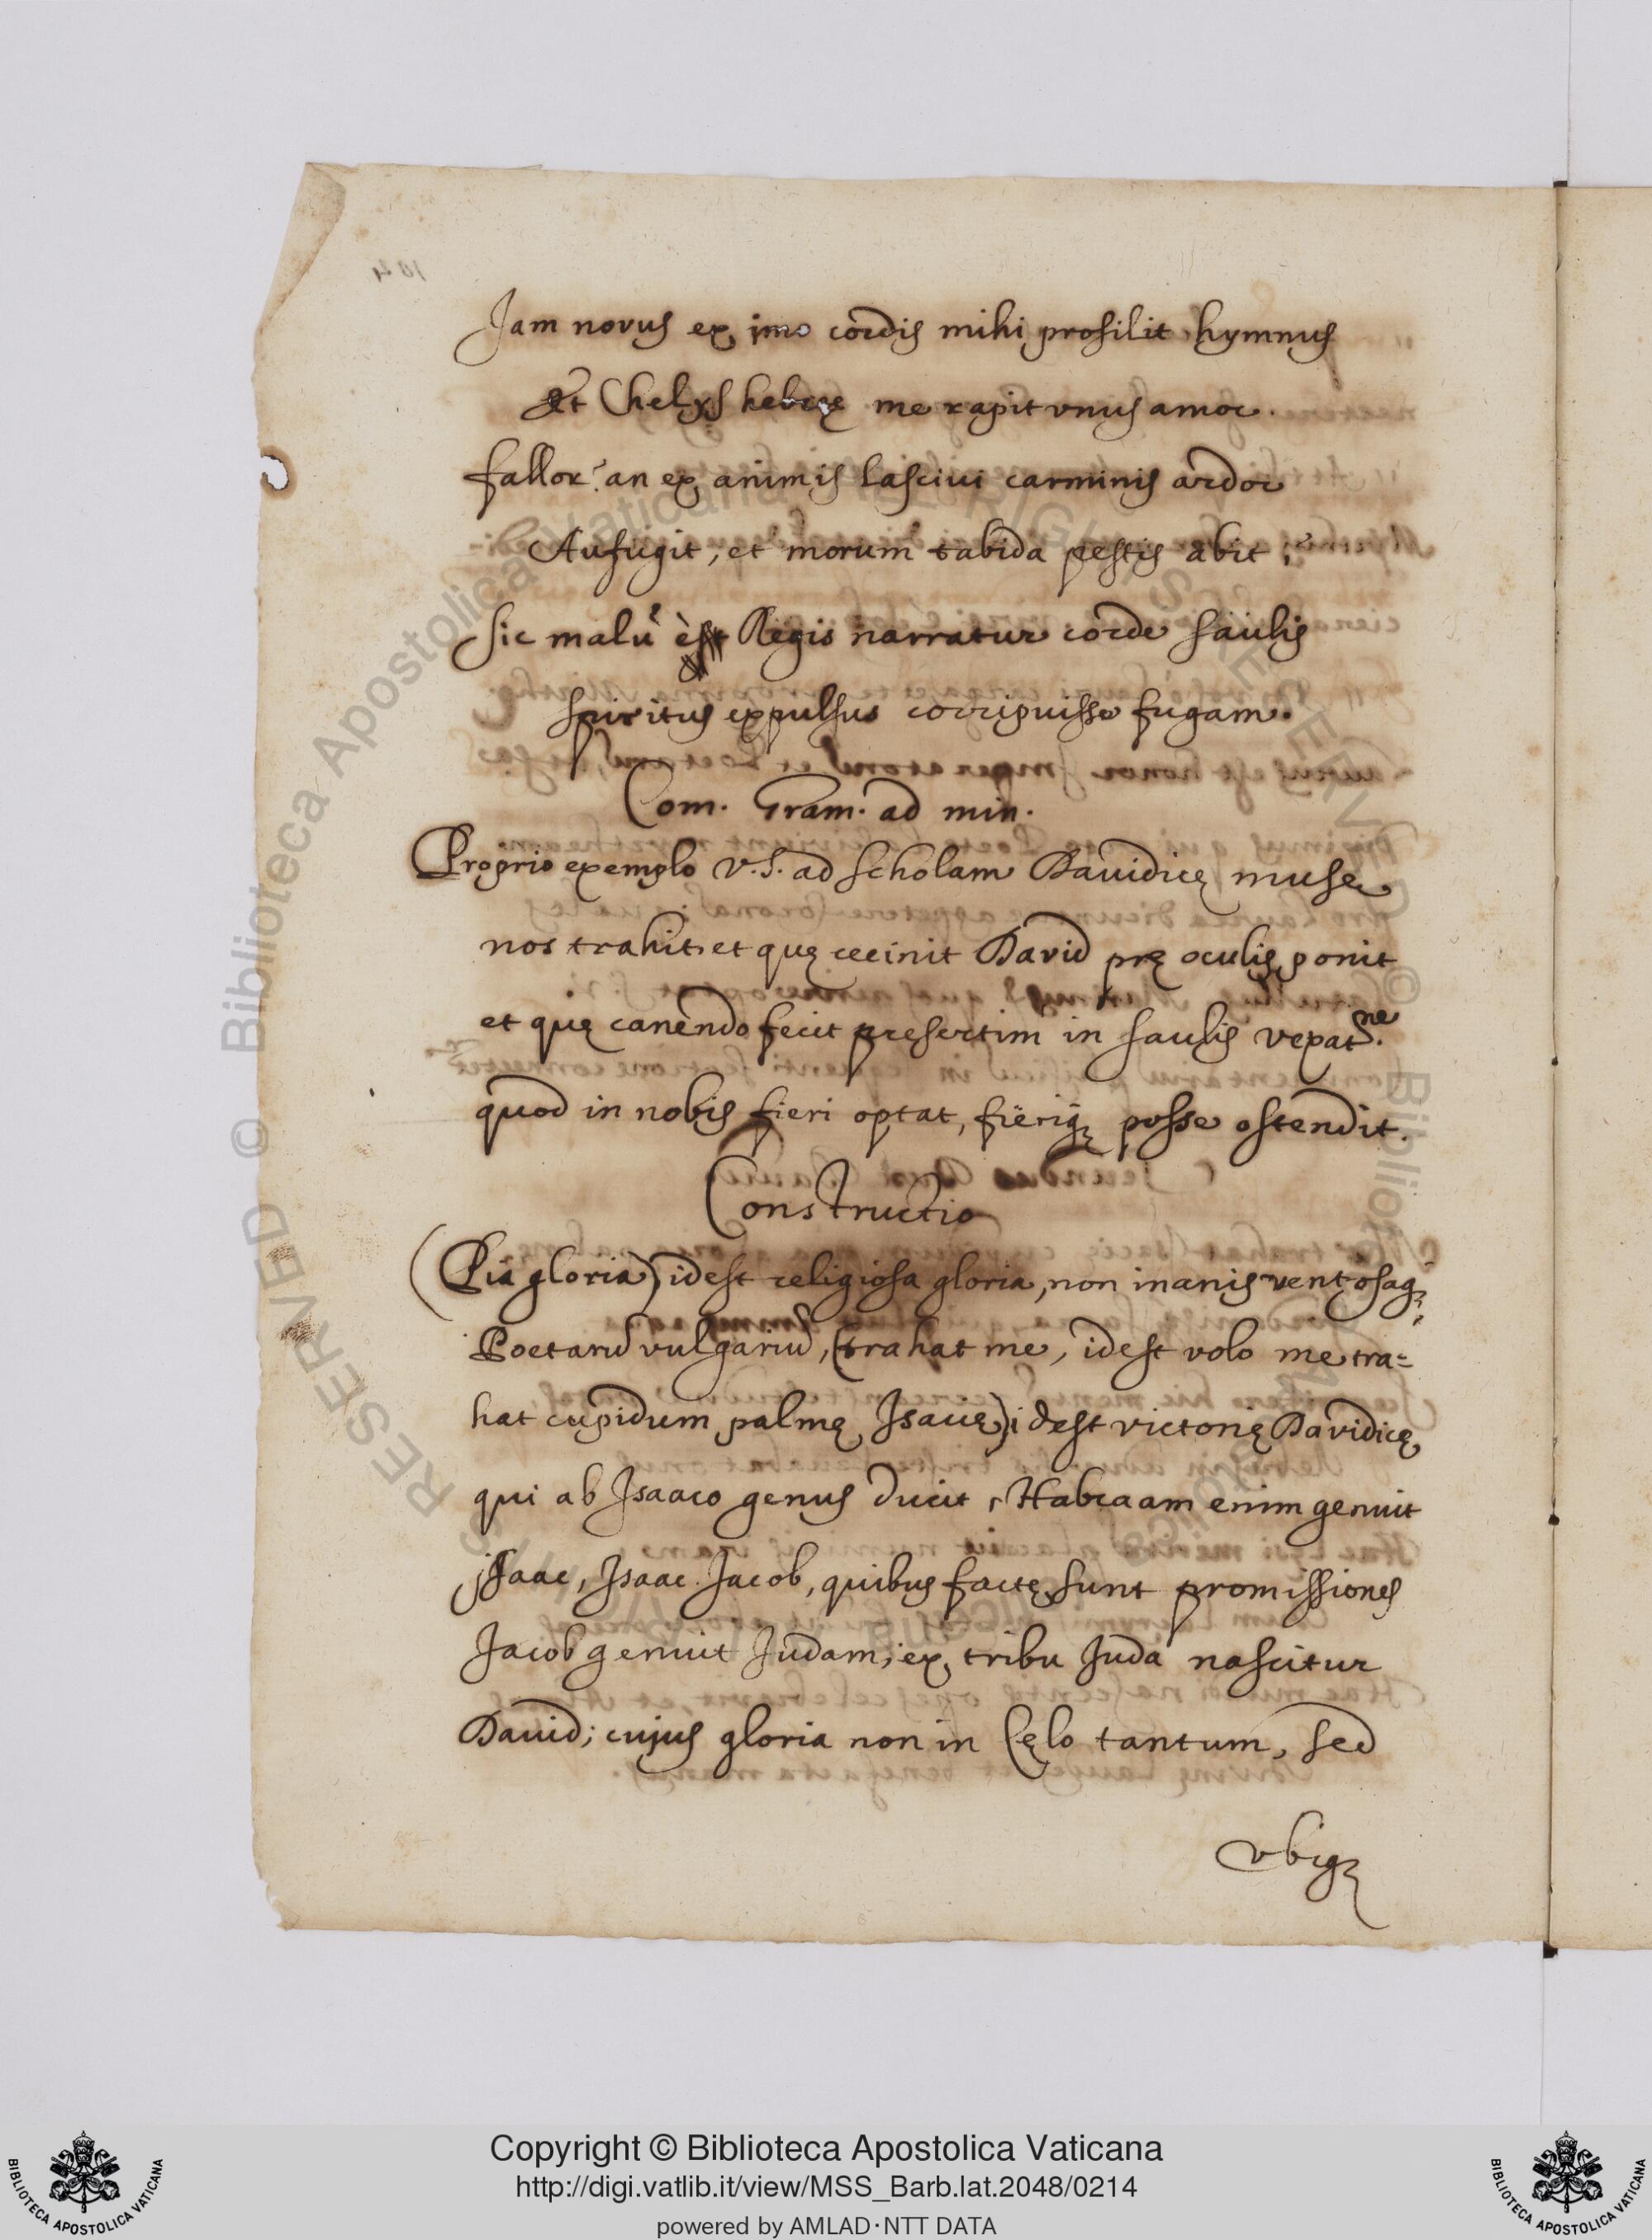 Jam novus ex imo cordis mihi prosilit hymnus
Et Chelys hebreę me rapit vnus amor.
fallor? an ex animis lasciui carminis ardor
Aufugit, et morum tabida pestis abit?
Sic malũ est Regis narratur corde saülis
spiritus expulsus corripuisse fugam.
Com. Gram. ad min.
Proprio exemplo V.S. ad scholam Dauidicę muse
nos trahit et quę cecinit David prę oculis ponit
et quę canendo fecit presertim in saulis vexatne.
quod in nobis fieri optat, fierïq; posse ostendit.
Constructio
(Pia gloria) idest religiosa gloria, non inanis ventosaq;
Poetarũ vulgariũ, (trahat me, idest volo me tra=
hat cupidum palmę Isacię) idest victorię Davidicę
qui ab Isaaco genus ducit, Habraam enim genuit
jsaac, Isaac Jacob, quibus factę sunt promissiones
Jacob genuit Judam, ex tribu Juda nascitur
Dauid; cujus gloria non in Cęlo tantum, sed
vbiq;
Copyright © Biblioteca Apostolica Vaticana
http://digi.vatlib.it/view/MSS_Barb.lat.2048/0214
powered by AMLAD·NTT DATA